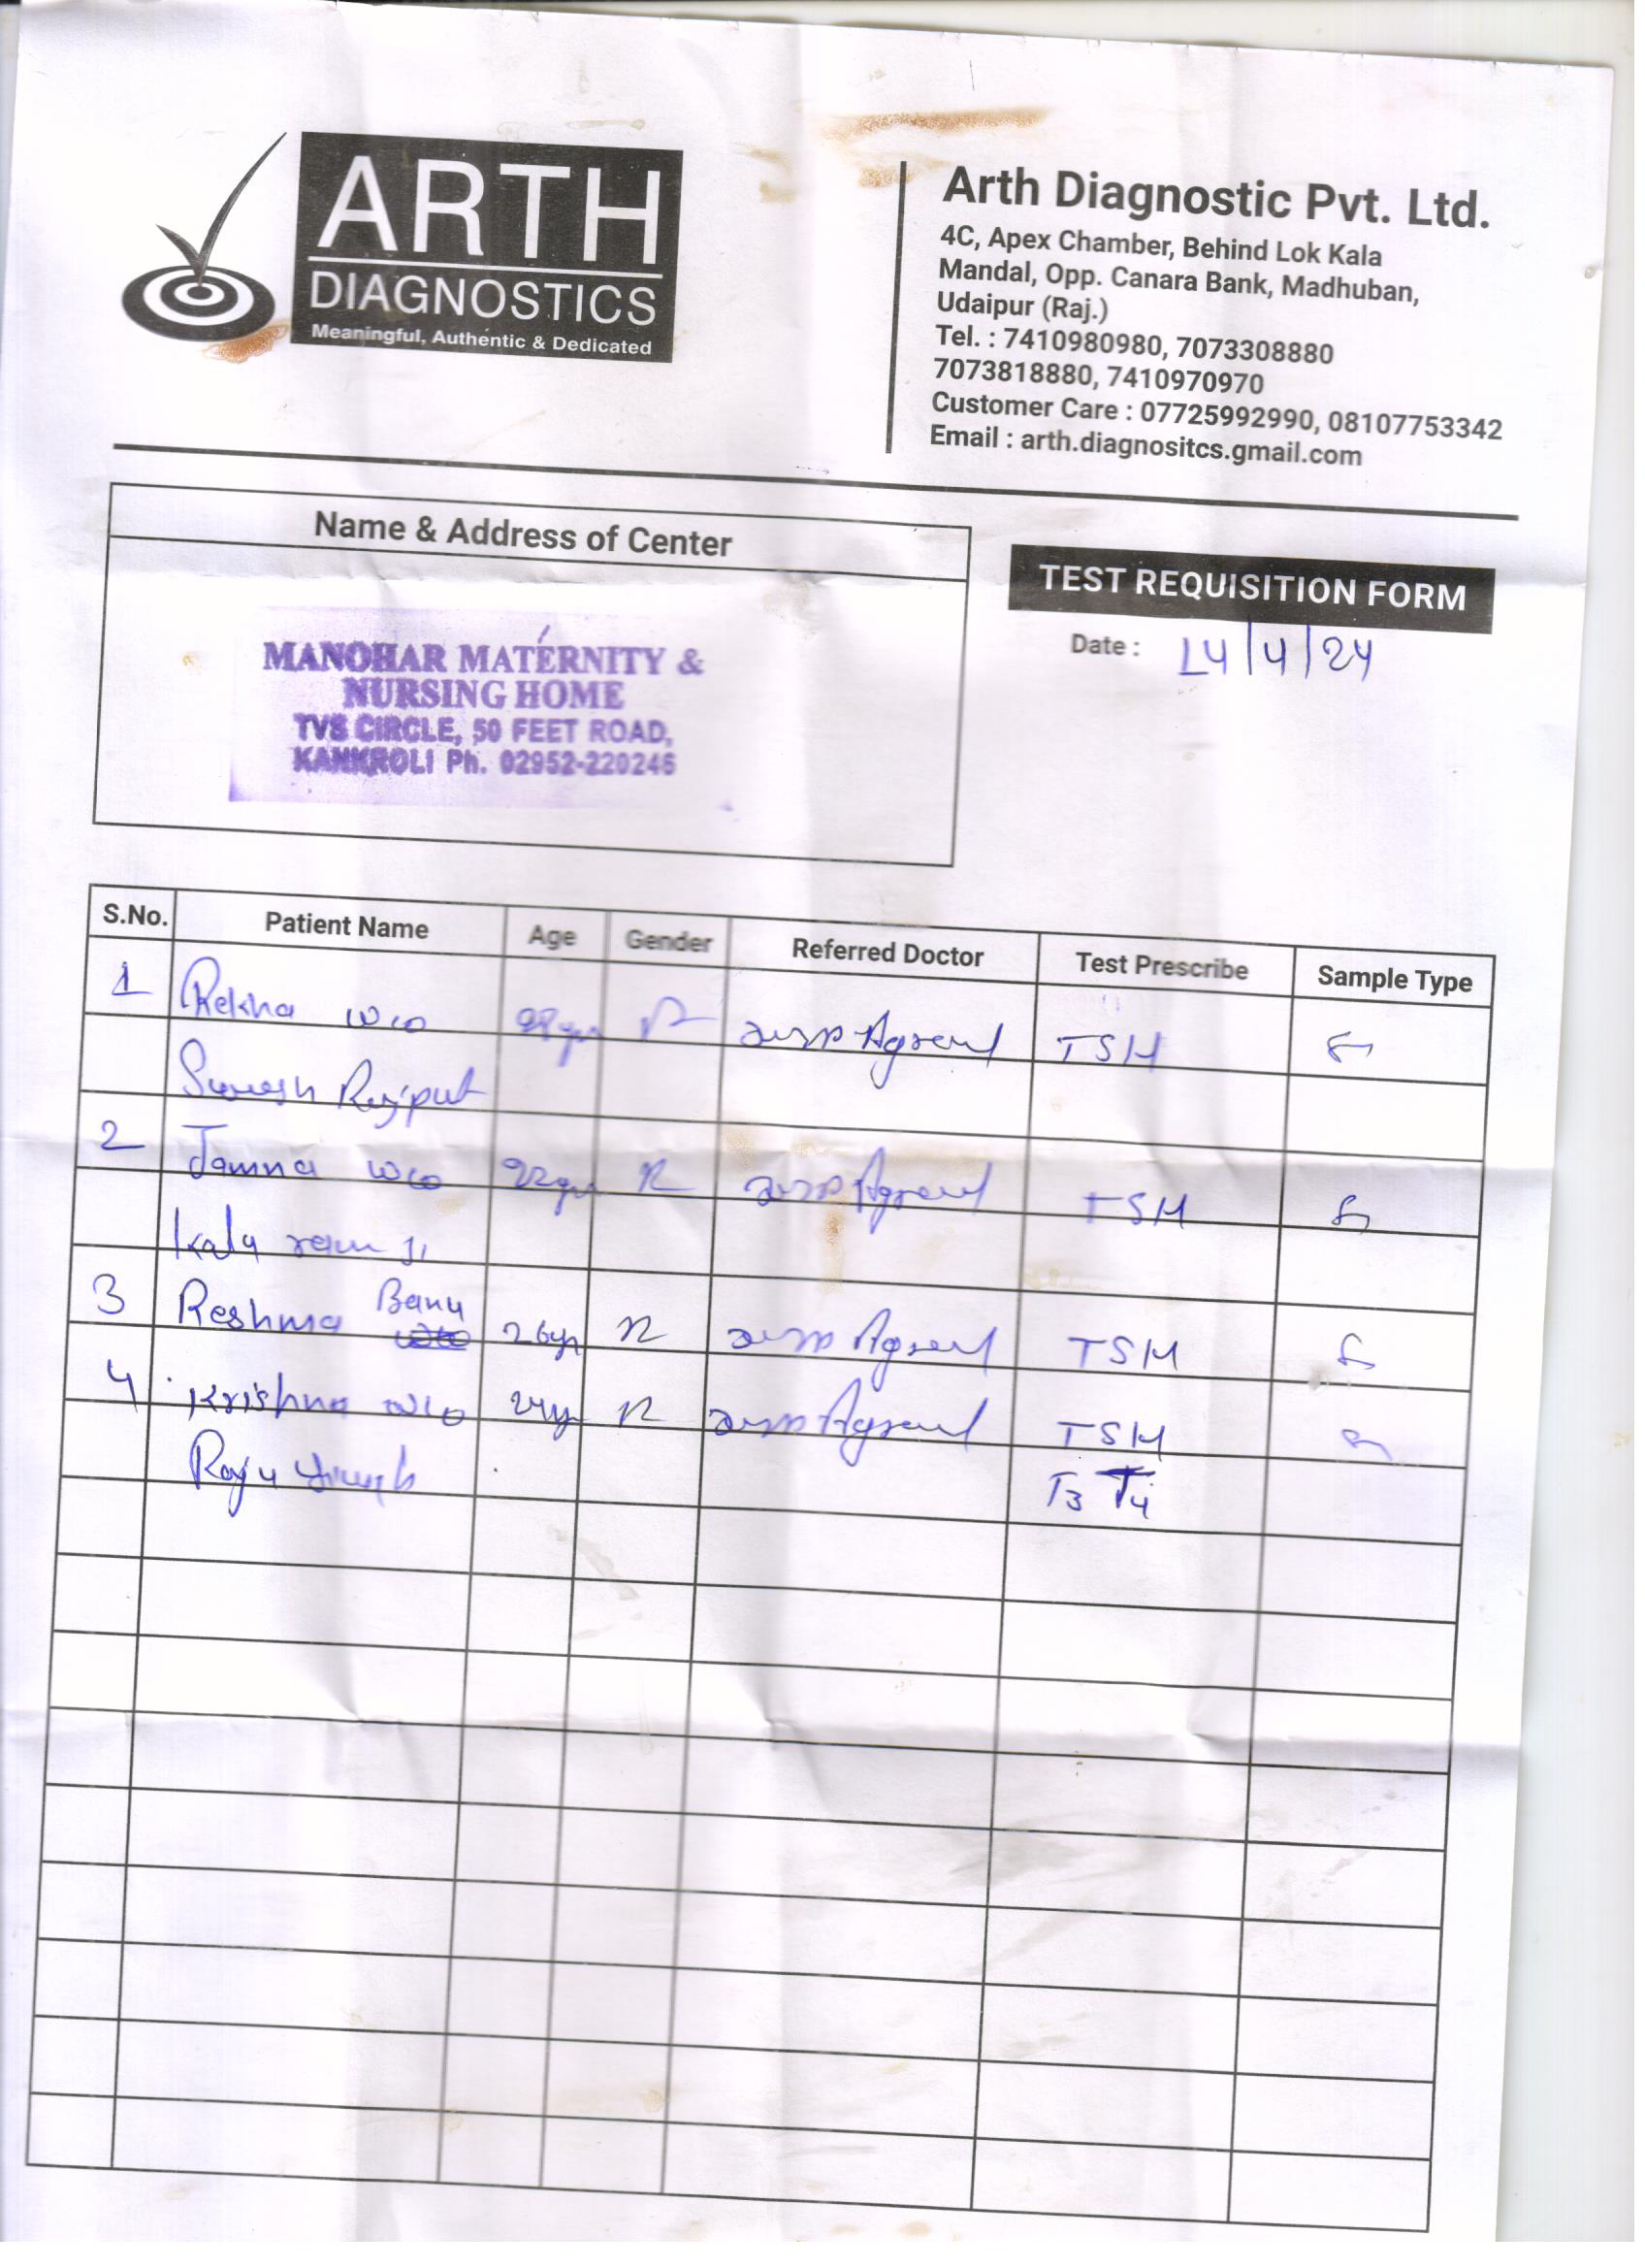 ARTH
DIAGNOSTICS
Meaningful, Authentic & Dedicated
Arth Diagnostic Pvt. Ltd.
4C, Apex Chamber, Behind Lok Kala
Mandal, Opp. Canara Bank, Madhuban,
Udaipur (Raj.)
Tel. : 7410980980, 7073308880
7073818880, 7410970970
Customer Care : 07725992990, 08107753342
Email : arth.diagnositcs.gmail.com
Name & Address of Center
MANOHAR MATERNITY &
NURSING HOME
TVS CIRCLE, 50 FEET ROAD,
KANKROLI Ph. 02952-220246
TEST REQUISITION FORM
Date : 14/4/24
S.No. Patient Name Age Gender Referred Doctor Test Prescribe Sample Type
1 Rekha w/o Agrawal TSH
Suresh Rajput
2 Jamna w/o 22yr Agrawal TSH
Kalu ram ji
3 Reshma Banu 26yr Agrawal TSH
4 Krishna w/o 24yr Agrawal TSH
Raju T3 T4